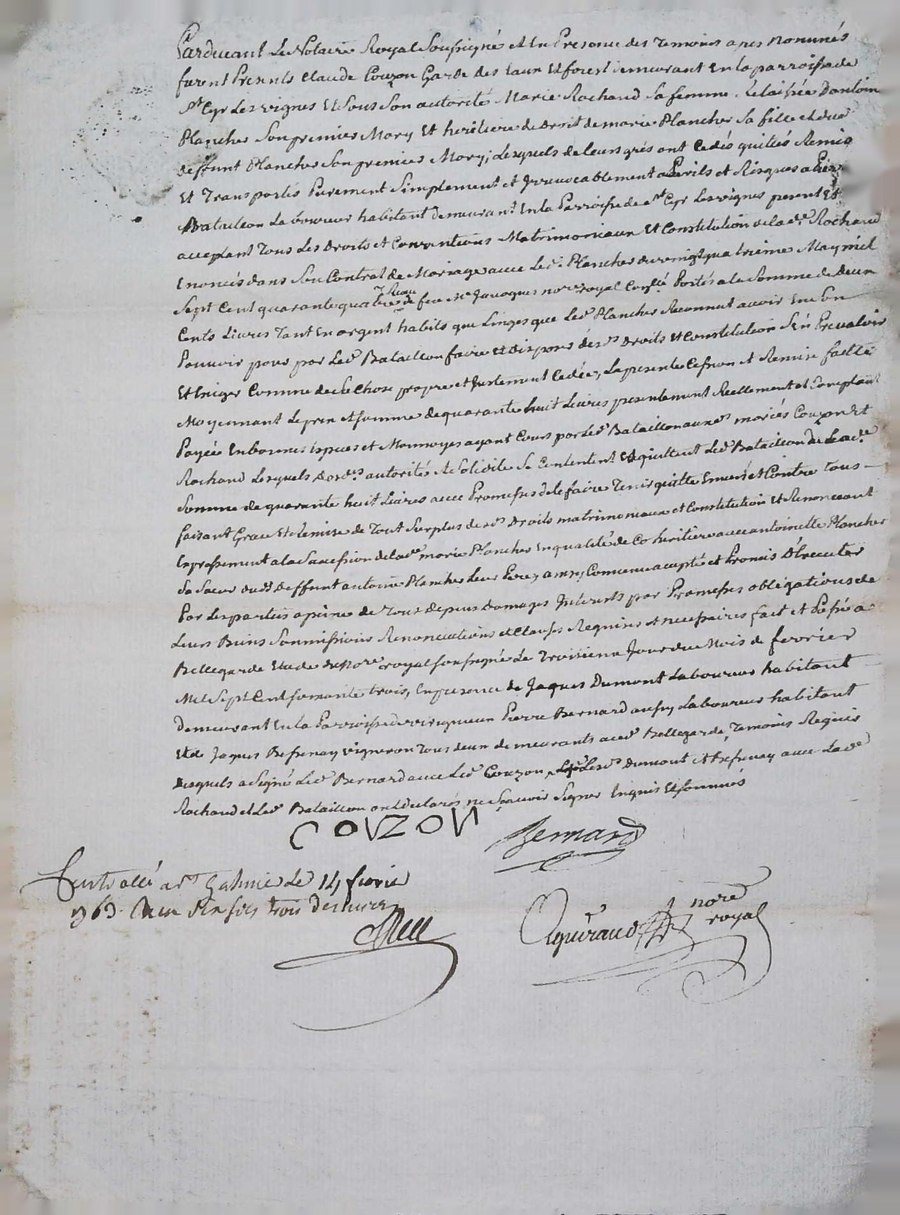 Pardevant Le Notaire Royal Soussigné Et En Presence des Temoins apres Nommés
furent Presents Claude Couzon Garde des Eaux Et forest demeurant En la parroisse de
St Cyr Les vignes Et sous Son autorité Marie Rochand Sa femme. delaissée Dantoine
Plancher Son premier Mary Et heretiere de Droit de marie Plancher Sa fille et dud
deffunt Plancher Son premier Mary, Lesquels de Leurs grés ont Cedés quittés Remis
Et Transportés Purement Simplement et Irrevocablement a Perils et Risques a Pierre
Bataillon Laboureur habitant demeurant En la Parroisse de St Cyr Les vignes present Et
acceptant Tous Les Droits et Conventions Matrimoniaux Et Constitution de lade Rochand
Enoncés dans Son Contrat de Mariage avec Led. Plancher du vingt quatrieme May mil
Sept Cent quarante quatre Reçu de feu Me Jacques nore royal Portés a la Somme de deux
Cents Livres Tant En argent habits que Linges que Led Plancher Reconnut avoir En Son
Pouvoir pour par Led Bataillon faire Et disposé desds Droits et Constitution S'En Prevaloir
Et Exiger Comme de Sa Chose propre et Justement Cedée, La presente Cession et Remise faitte
Moyennant Le prix et Somme de quarante huit Livres presentement Reellement et Comptant
Payée En bonnes Espces et Monnoyes ayant Cours par led Bataillon auxds mariés Couzon Et
Rochand Lesquels de autorité Et Solidite Se Contentent Et quittent led Bataillon de lade
Somme de quarante huit Livres avec Promesse de le faire Tenir quitte Envers et Contre Tous
faisant Grace Et Remise de Tout Surplus desds Droits matrimoniaux et Constitution Et Renonceant
Expressement a la Succession de lade marie Plancher En qualité de Co heritiere avec antoinette Plancher
Sa Sœur dud Deffunt antoine Plancher Leur Pere, ainsy Convenu accepté et Promis D'Executer
Par Les parties a peine de Tous depens Domages Interets par Promesses obligations de
Leurs Biens Soumissions Renonciations et Clauses Requises et necessaires fait et Passé a
Bellegarde Etude du nore royal Soussigné Le Troisieme Jour du Mois de fevrier
Mil Sept Cent soixante trois, En presence de Jaques Dumont Laboureur habitant
demeurant En la Parroisse de Pierre Bernard aussy Laboureur habitant
Et de Jaques Befrenay vigneron Tous deux demeurants aud Bellegarde, Temoins Requis
desquels a Signé Led Bernard avec Led Couzon, Dumont et Befrenay avec Lade
Rochand et Led Bataillon ont declarés ne Sçavoir Signer Enquis Et Sommés
COUZON
Bernard
Controllé a St Galmie Le 14 fevrie
1763. trois deniers
Aguiraud nore
royal